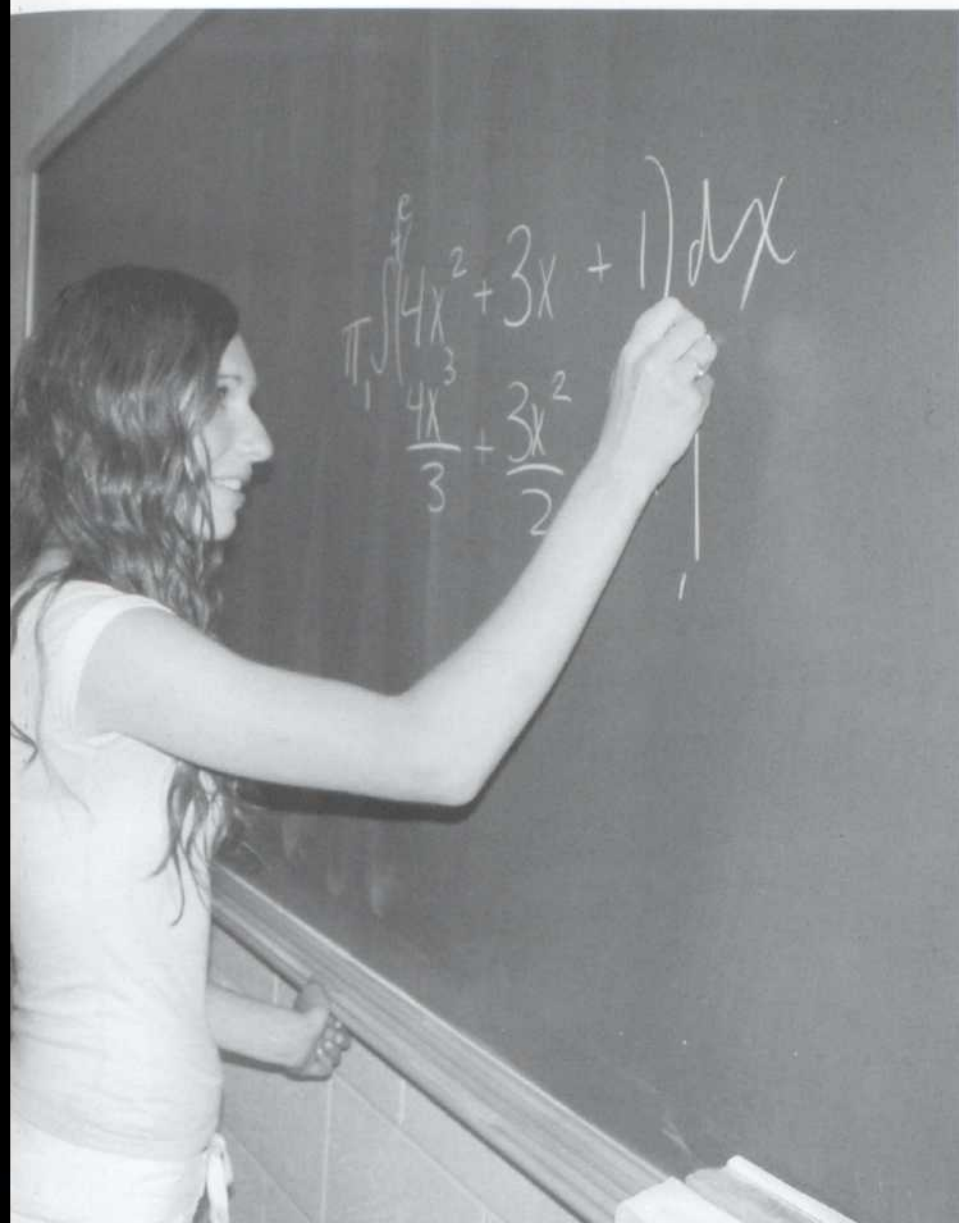 π∫₁ᵉ(4x² + 3x + 1)dx
4x³/3 + 3x²/2 |₁